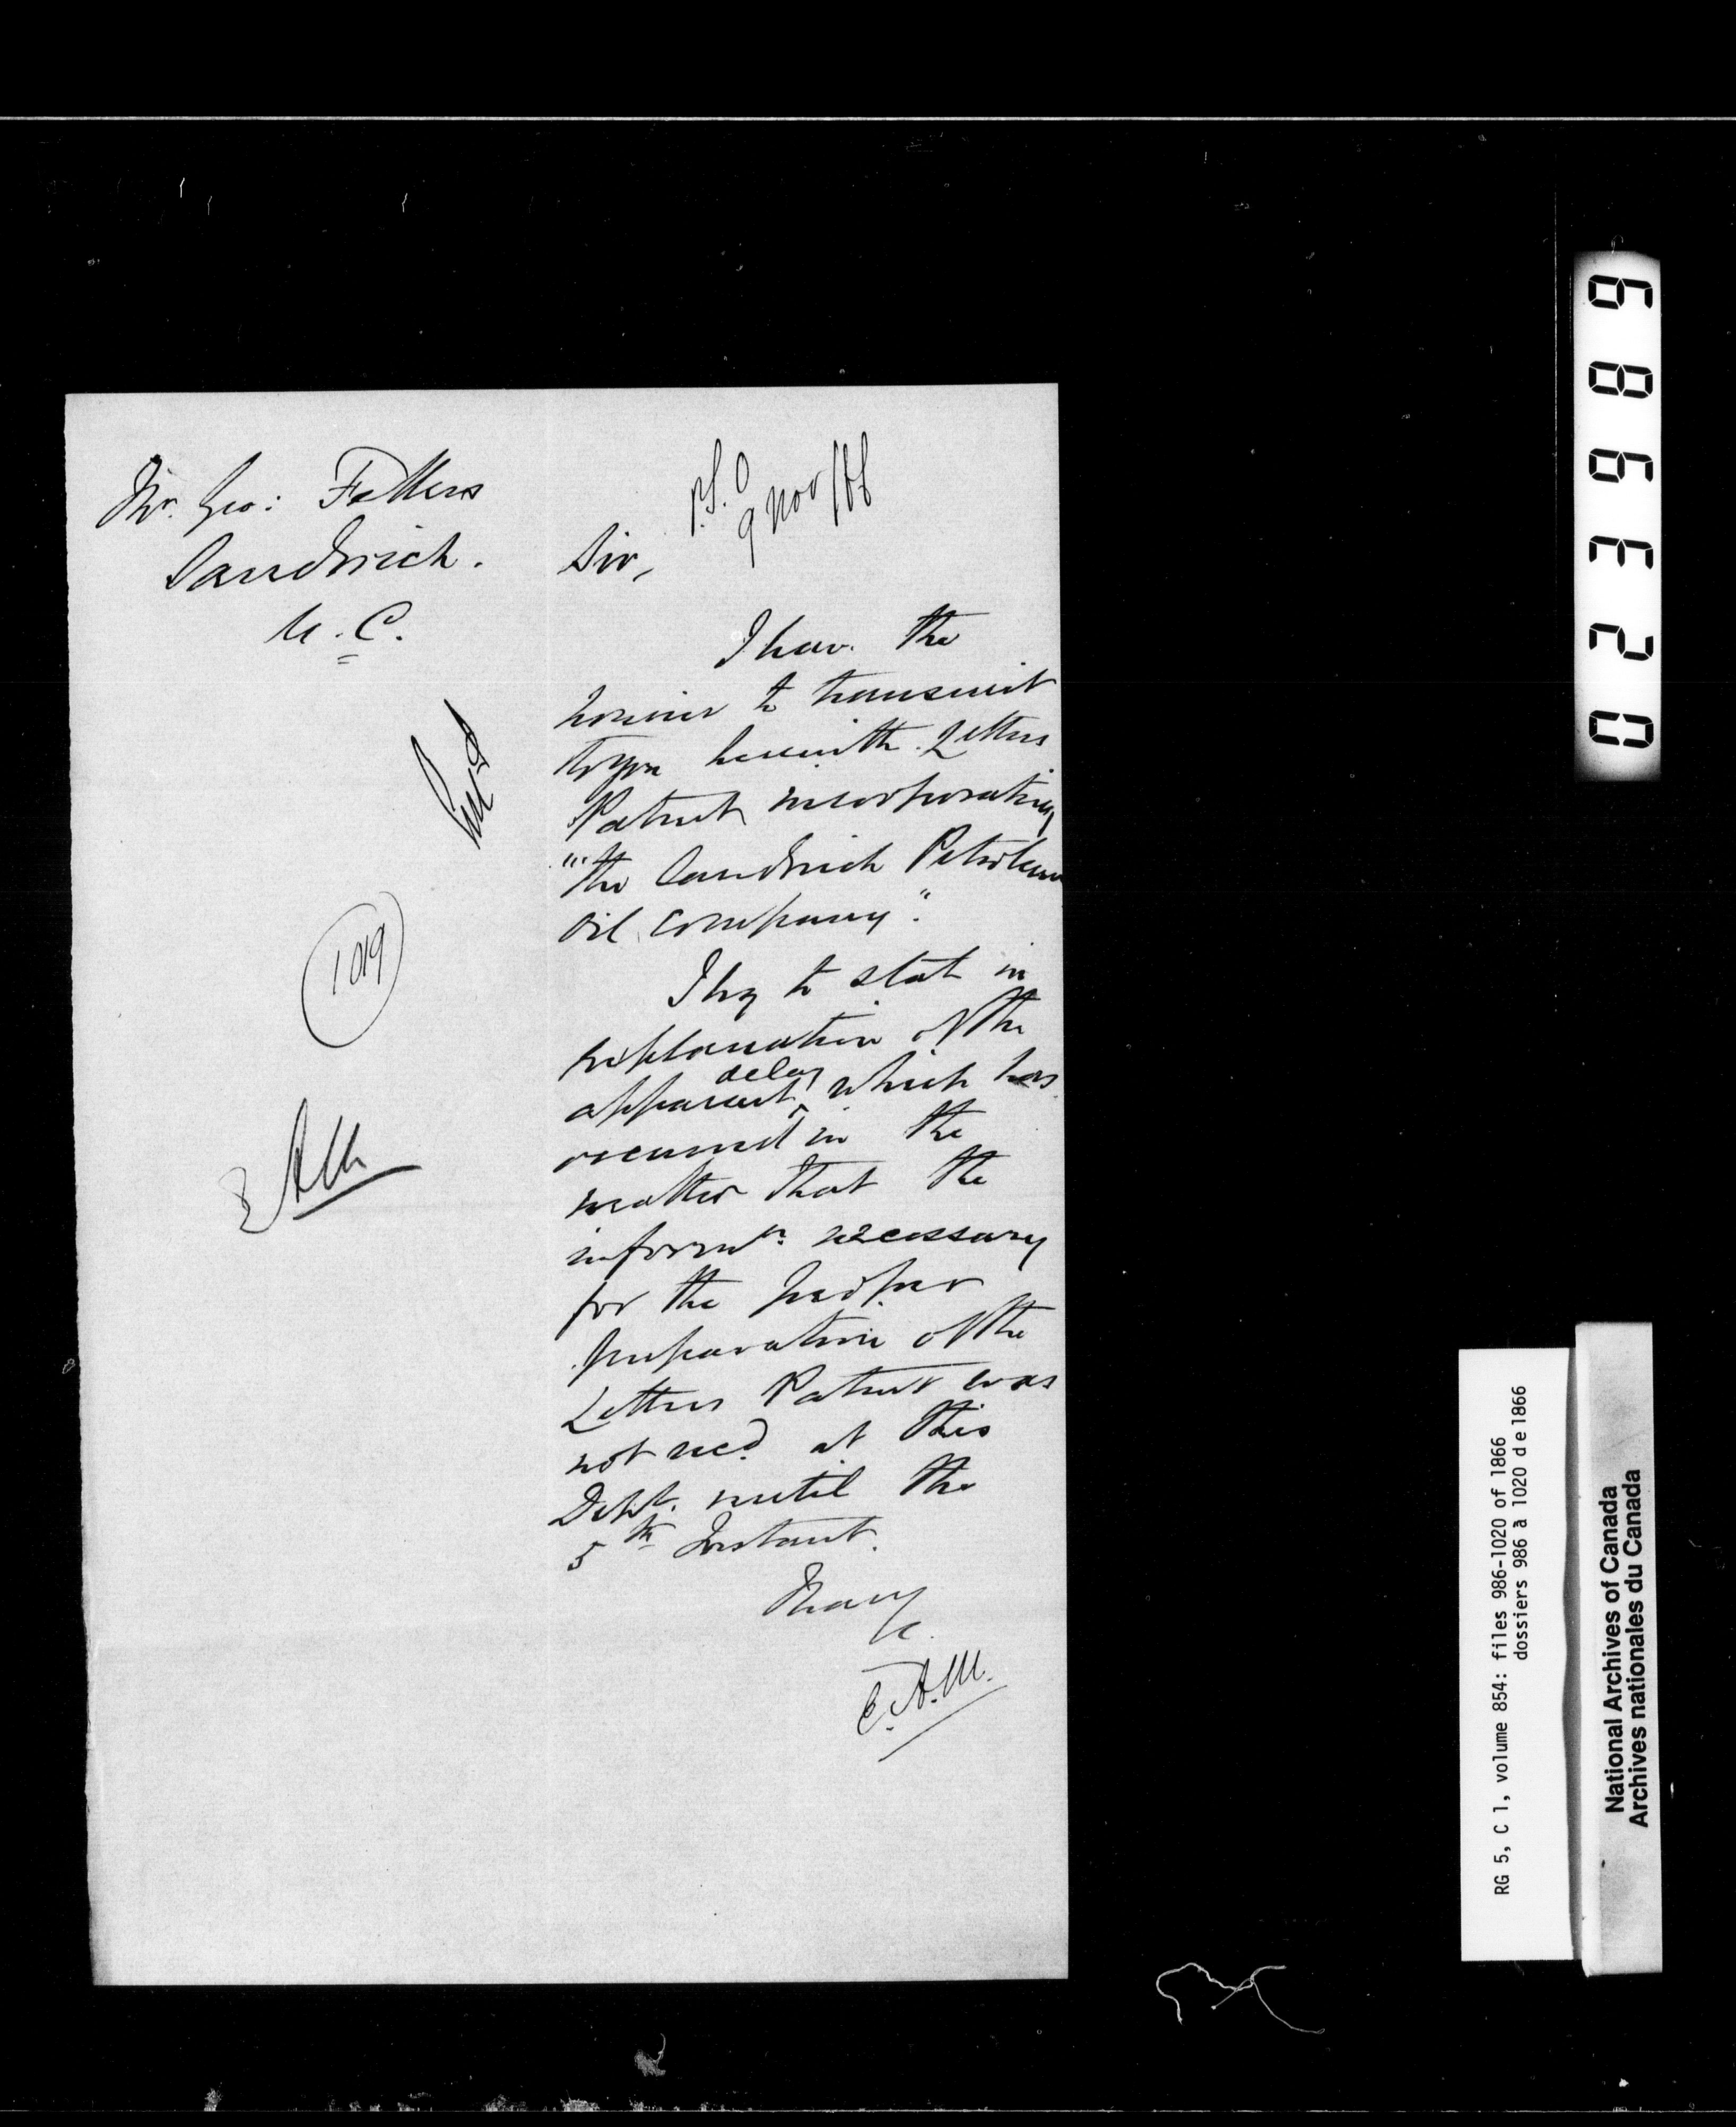 Mr. Geo: Fellers
Sandwich.
U.C.
P.S.O
9 Nov/66
Sir,
I have the
honour to transmit
to you herewith Letters
Patent incorporating
"The Sandwich Petroleum
Oil Company".
I beg to state in
explanation of the
apparent delay which has
occurred in the
matter that the
informn. necessary
for the proper
preparation of the
Letters Patent was
not recd. at this
Dept. until the
5th Instant.
I have
&c.
E.A.M.
1019
EAM
RG 5, C 1, volume 854: files 986-1020 of 1866
dossiers 986 à 1020 de 1866
National Archives of Canada
Archives nationales du Canada
023689